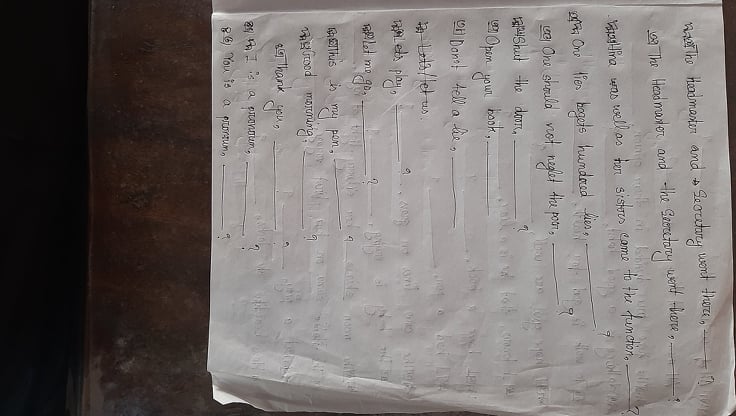 The Headmaster and Secretary went there, ______ ?
The Headmaster and the Secretary went there, ______ ?
Hina was well as her sisters came to the function, ______ ?
One lies bogets hundored lies, ______ ?
One should not neglet the poor, ______ ?
Shut the door, ______ ?
Open your book, ______
Donot tell a lie, ______
Let's/let us.
Let's play, ______ ?
Let me go, ______ ?
This is my pen, ______ ?
Good morning, ______ ?
Thank you, ______ ?
I is a pronoun, ______ ?
You is a pronoun, ______ ?